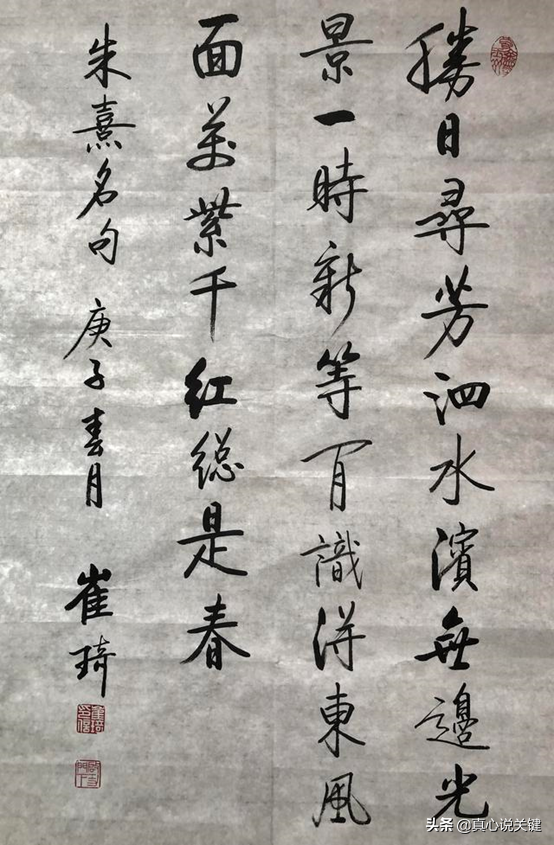 勝日尋芳泗水濱無邊光
景一時新等閒識得東風
面萬紫千紅總是春
朱熹名句 庚子春月 崔琦
头条 @真心说关键